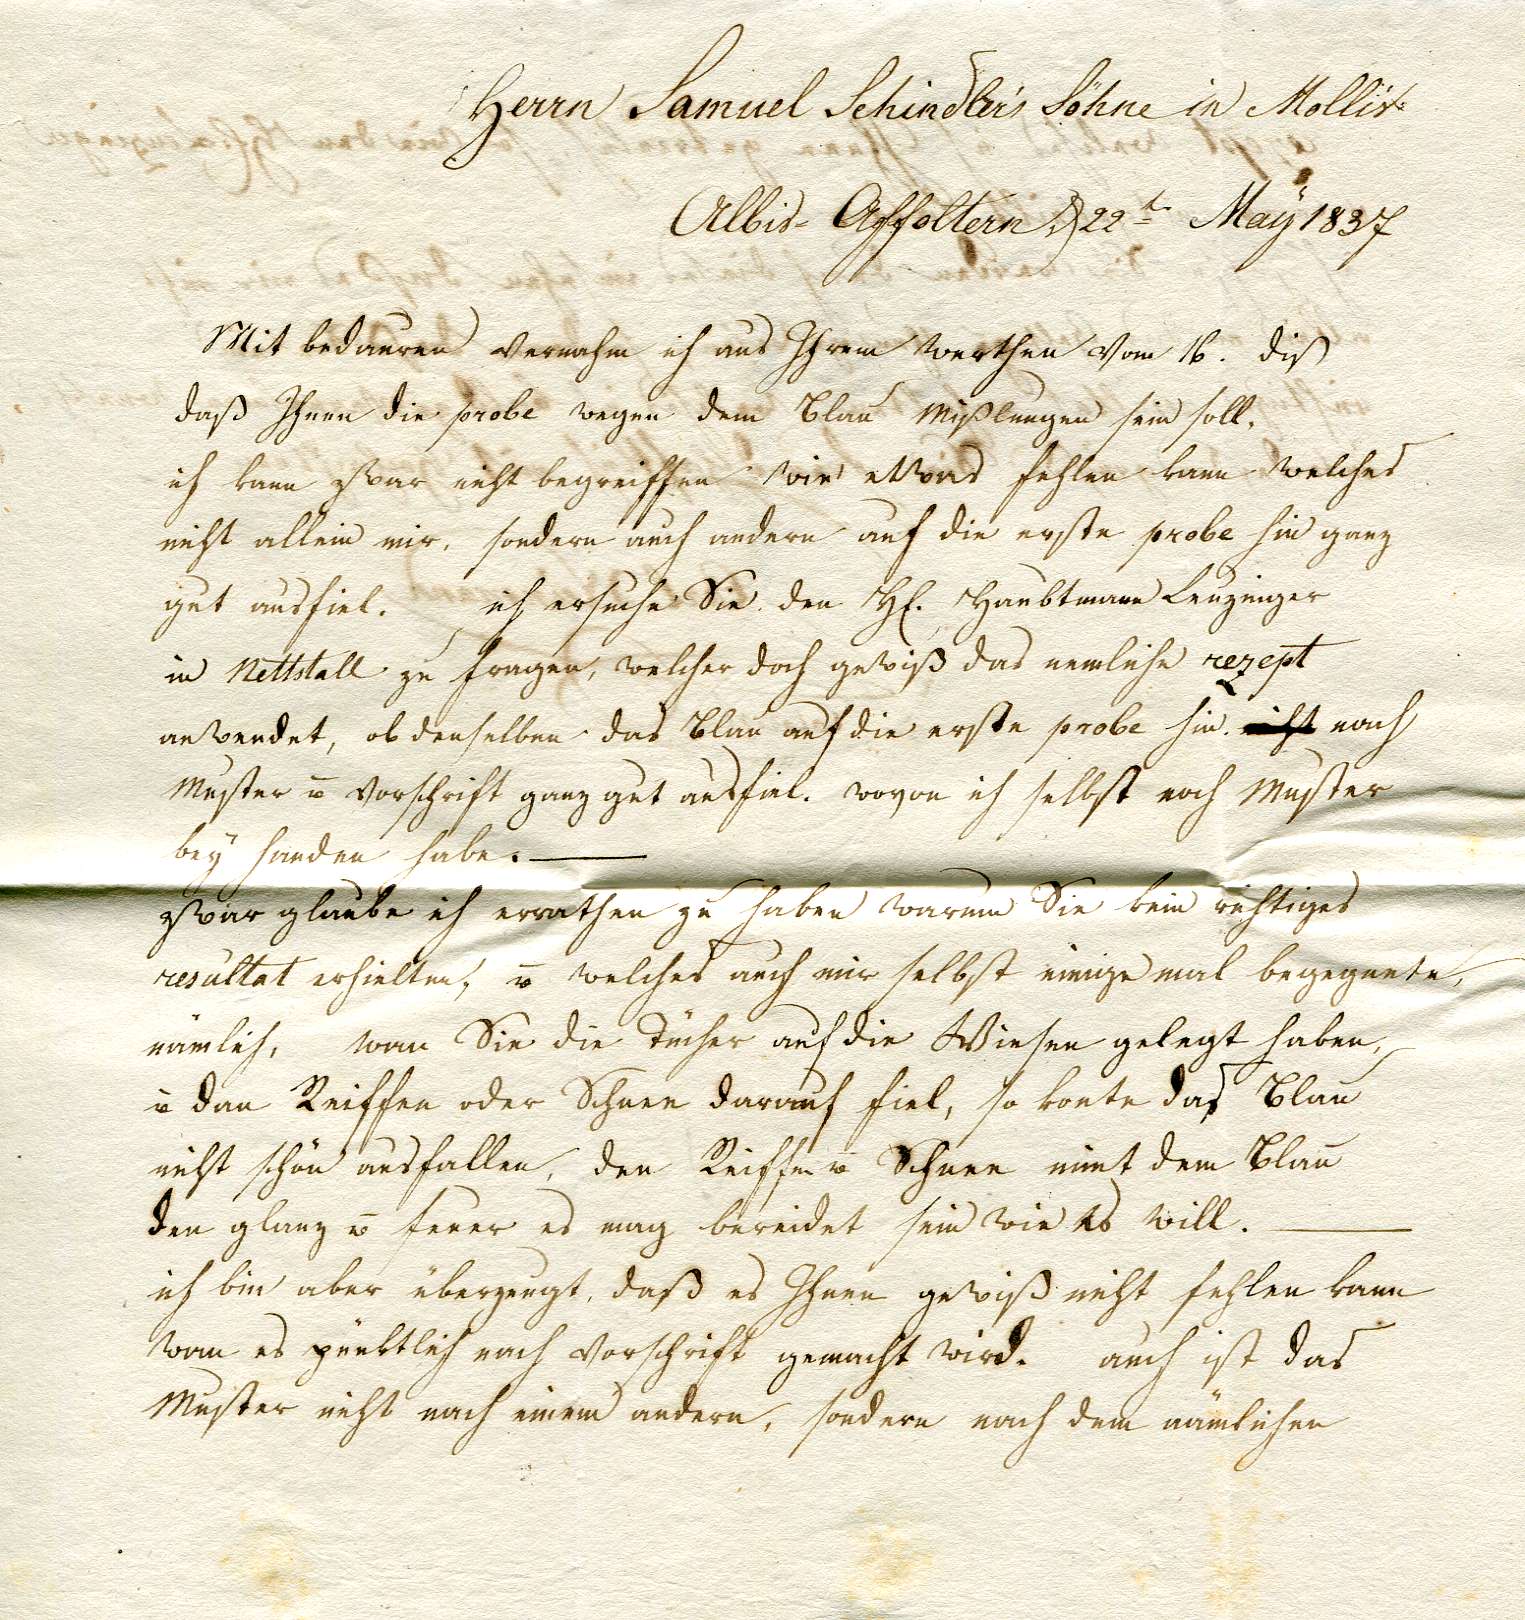 Herrn Samuel Schindler's Söhne in Mollis
Albis-Affoltern, d 22t May 1837
Mit bedauren vernahm ich aus Ihrem werthen vom 16. diß
daß Ihnen die probe wegen dem Blau mißlungen sein soll.
ich kann zwar nicht begreiffen wie etwas fehlen kann welches
nicht allein mir, sondern auch andern auf die erste probe hin ganz
gut ausfiel. ich ersuche Sie den Hh. Haubtmann Leuzinger
in Nettstall zu fragen, welcher doch gewiß das nemliche rezept
anwendet, ob denselben das Blau auf die erste probe hin nach
Muster u vorschrift ganz gut ausfiel. wovon ich selbst noch Muster
bey handen habe. —
zwar glaube ich errathen zu haben warum Sie kein richtiges
resultat erhielten, u welches auch mir selbst einige mal begegnete,
nämlich, wan Sie die Tücher auf die Wiesen gelegt haben,
u dan Reiffen oder Schnee darauf fiel, so konte das Blau
nicht schön ausfallen, den Reiffen u Schnee nimt dem Blau
den glanz u feuer es mag bereidet sein wie es will. —
ich bin aber überzeugt, daß es Ihnen gewiß nicht fehlen kann
wan es pünktlich nach vorschrift gemacht wird. auch ist das
Muster nicht nach einem andern, sondern nach dem nämlichen